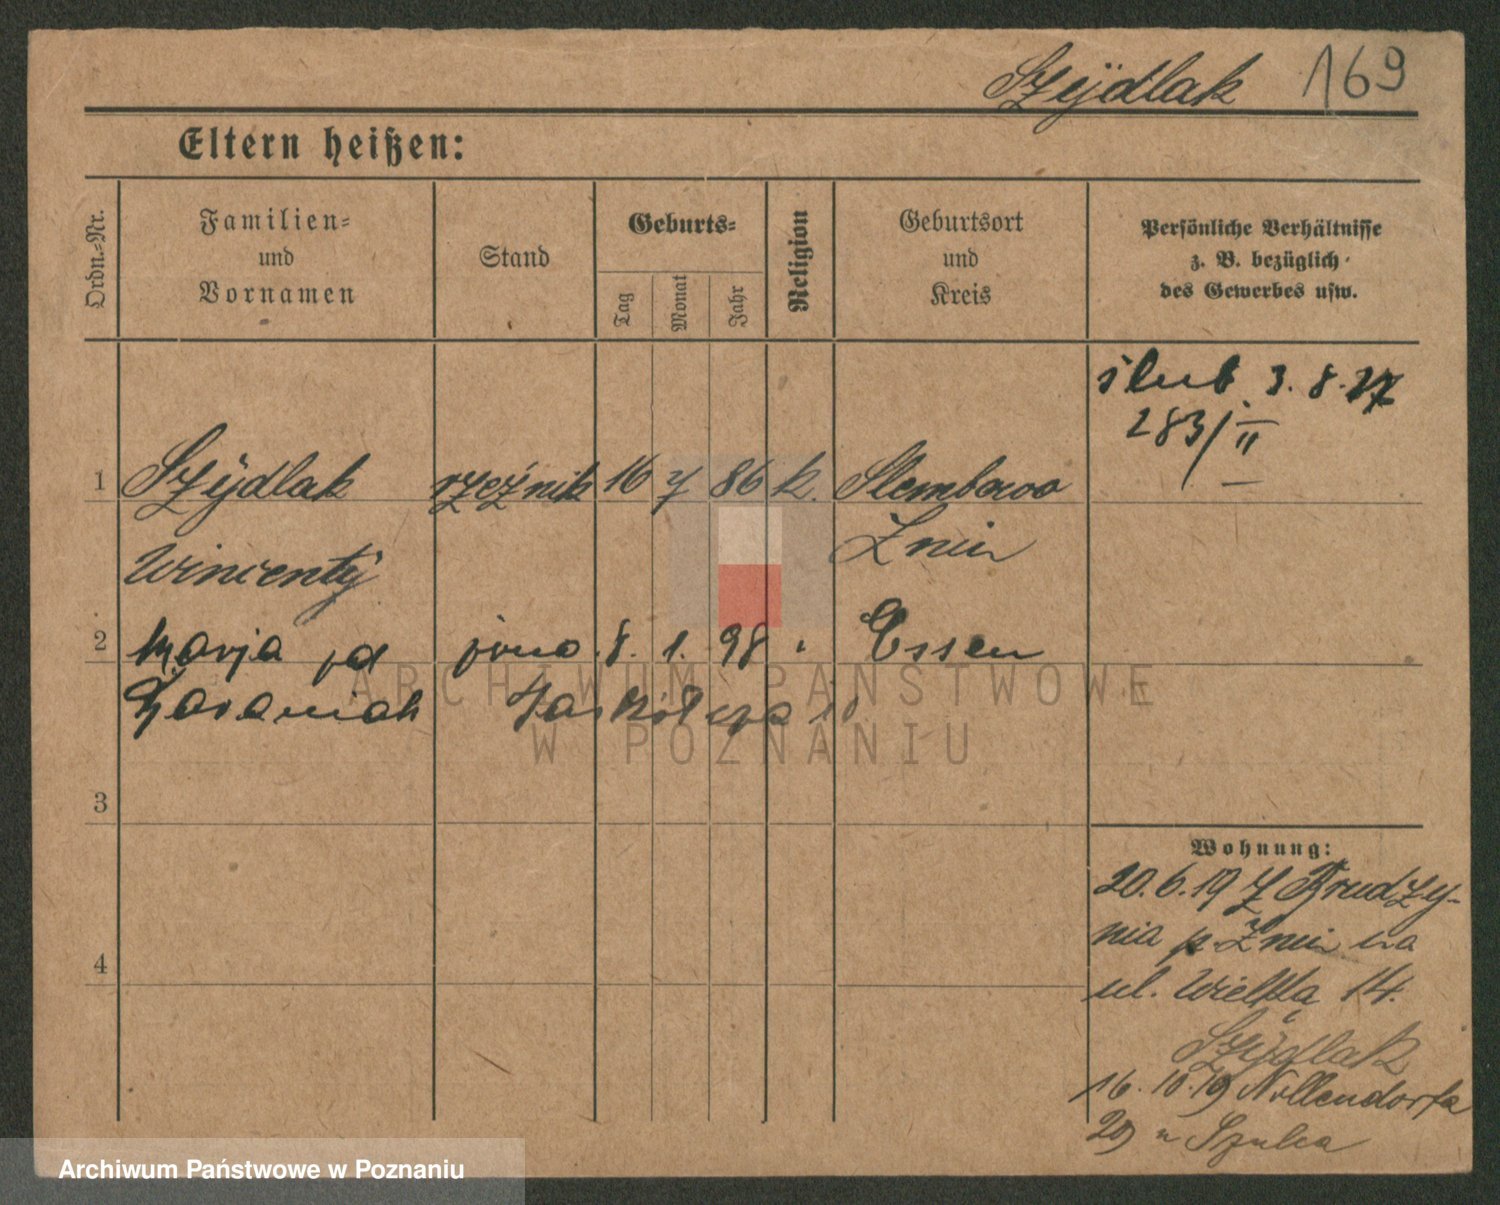 Szÿdlak 169
Eltern heißen:
Ordn.-Nr.
Familien-
und
Vornamen
Stand
Geburts-
Tag
Monat
Jahr
Religion
Geburtsort
und
Kreis
Persönliche Verhältnisse
z. B. bezüglich
des Gewerbes usw.
ślub 3. 8. 27
283/II
1 Szÿdlak rzeźnik 16 7 86 k. Slembowo
Wincentÿ Żnin
2 Marja 8. 1. 98 " Essen
3
4
Wohnung:
20.6.19 z Brudzy-
nia p Żnin na
ul. Wielką 14.
Szÿdlak
16. 10. 19 Nollendorfa
29 u Szulca
ARCHIWUM PAŃSTWOWE
W POZNANIU
Archiwum Państwowe w Poznaniu